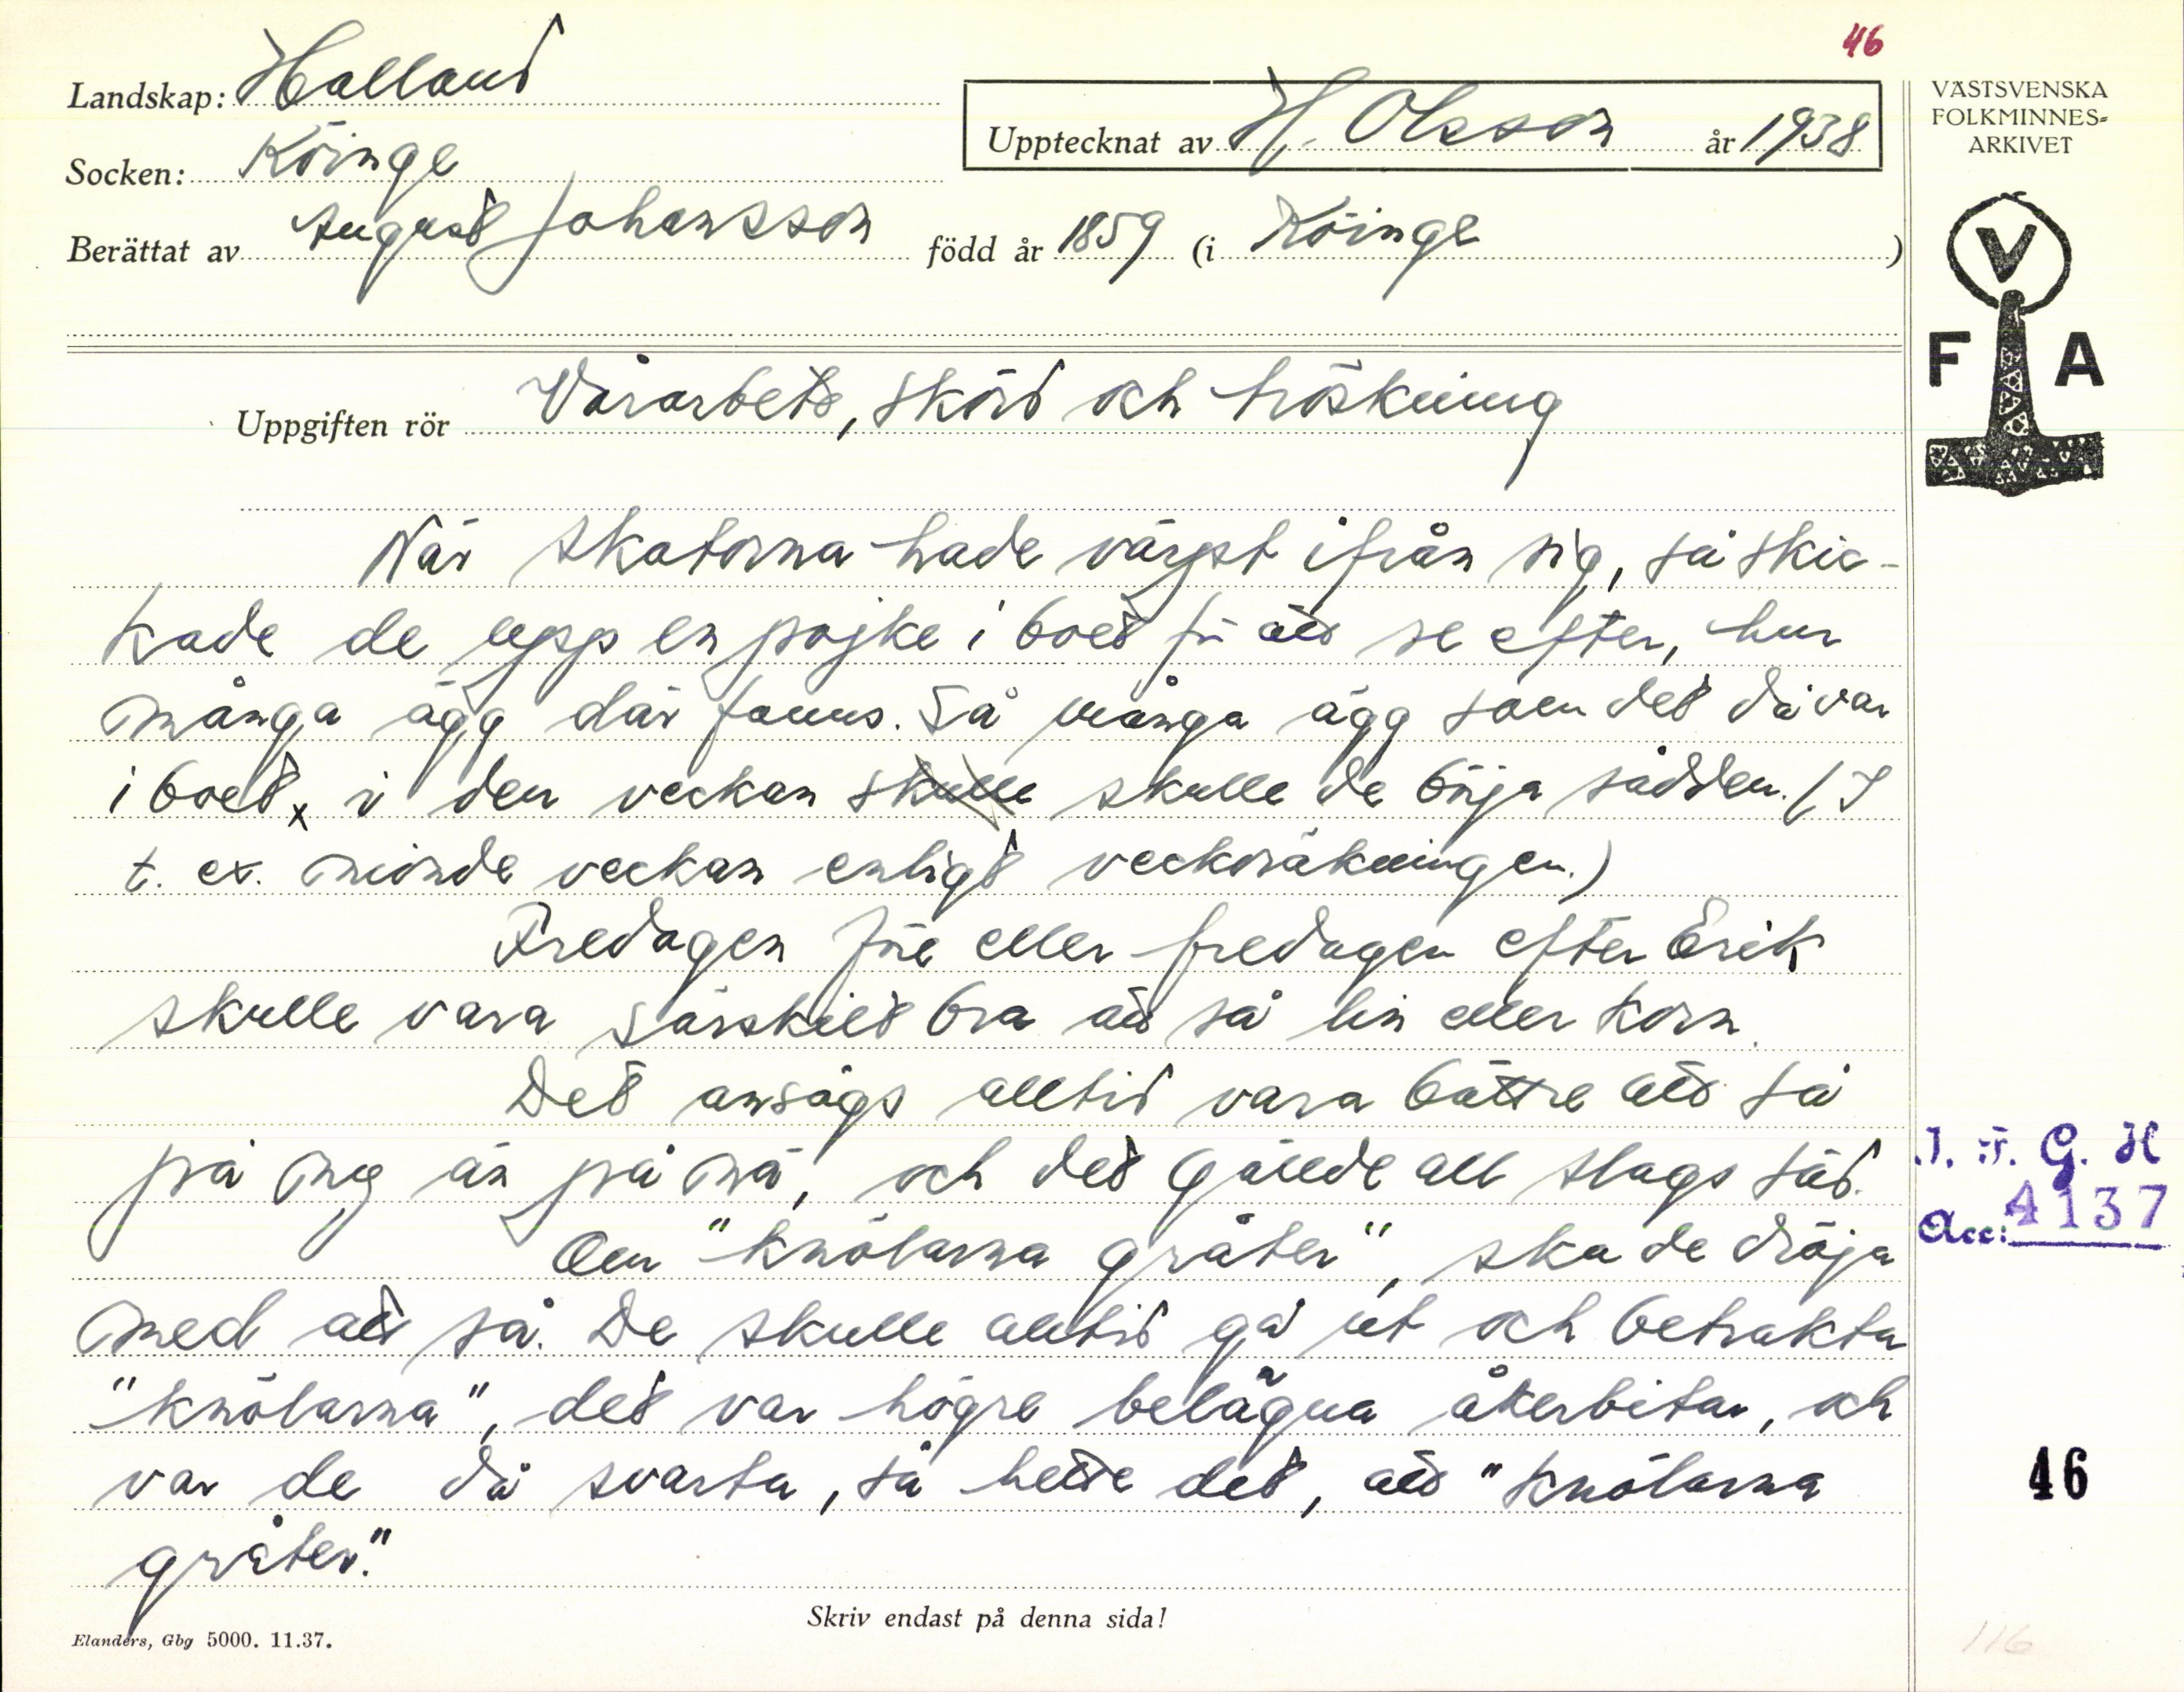 46
Landskap: Halland
Socken: Köinge
Upptecknat av H. Olsson år 1938
Berättat av August Johansson född år 1859 (i Köinge )
VÄSTSVENSKA
FOLKMINNES-
ARKIVET
V
F A
Uppgiften rör Vårarbete, skörd och tröskning
När skatorna hade värpt ifrån sig, så skic-
kade de upp en pojke i boet för att se efter, hur
många ägg där fanns. Så många ägg som det då var
i boet x i den veckan skulle skulle de börja sådden. (I
t. ex. nionde veckan enligt veckoräkningen.)
Fredagen före eller fredagen efter Erik
skulle vara särskilt bra att så lin eller korn.
Det ansågs alltid vara bättre att så
på ny än på nä, och det gällde all slags säd.
Om "knölarna gråter", ska de dröja
med att så. De skulle alltid gå ut och betrakta
"knölarna", det var högre belägna åkerbitar, och
var de då svarta, så hette det, att "knölarna
gråter."
I. F. G. H
Acc: 4137
46
Skriv endast på denna sida!
Elanders, Gbg 5000. 11.37.
116